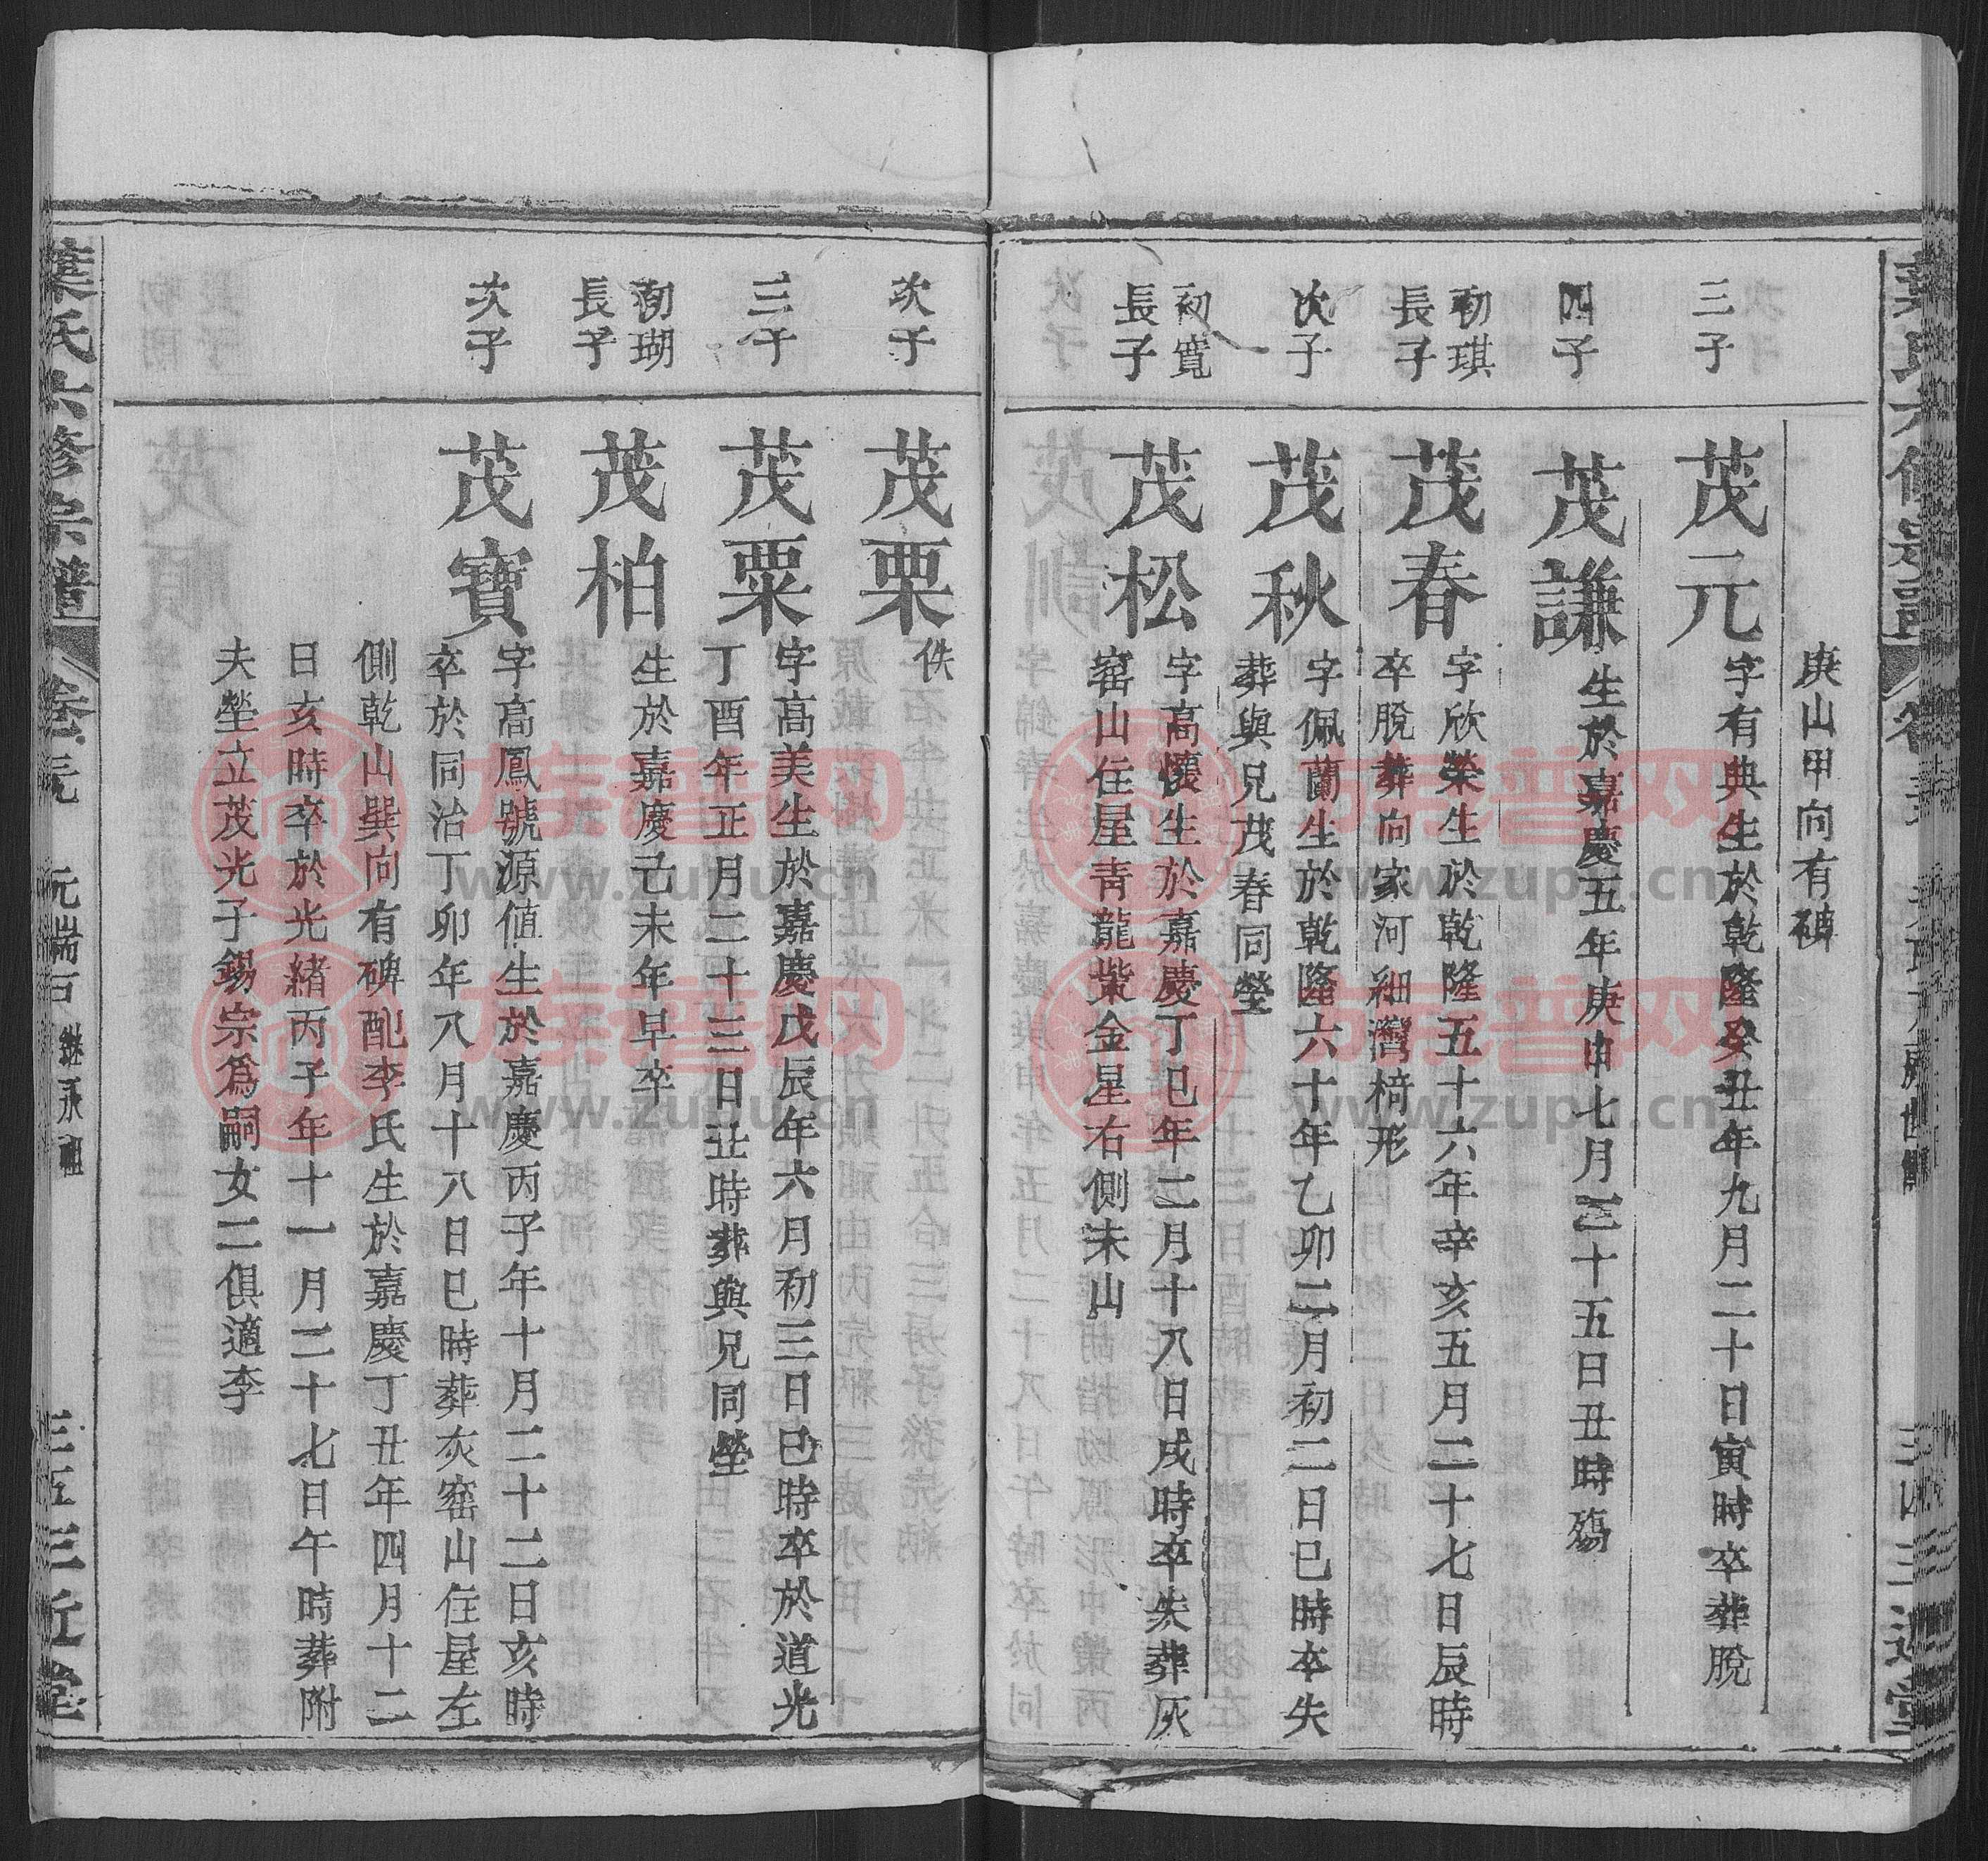 庚山甲向有碑
三子
茂元
字有典生於乾隆癸丑年九月二十日寅時卒葬脫
四子
茂謙
生於嘉慶五年庚申七月二十五日丑時殤
初琪
長子
茂春
字欣榮生於乾隆五十六年辛亥五月二十七日辰時
卒脫葬向家河細灣椅形
次子
茂秋
字佩蘭生於乾隆六十年乙卯二月初二日巳時卒失
葬與兄茂春同塋
初寬
長子
茂松
字高懷生於嘉慶丁巳年二月十八日戌時卒失葬灰
窰山住屋青龍紫金星右側未山
次子
茂栗
佚
三子
茂粟
字高美生於嘉慶戊辰年六月初三日巳時卒於道光
丁酉年正月二十三日丑時葬與兄同塋
初瑚
長子
茂柏
生於嘉慶己未年早卒
次子
茂寶
字高鳳號源値生於嘉慶丙子年十月二十二日亥時
卒於同治丁卯年八月十八日巳時葬灰窰山住屋左
側乾山巽向有碑配李氏生於嘉慶丁丑年四月十二
日亥時卒於光緒丙子年十一月二十七日午時葬附
夫塋立茂光子錫宗爲嗣女二俱適李
葉氏六修宗譜
卷
三五三近堂
族普网
www.zupu.cn
族普网
www.zupu.cn
族普网
www.zupu.cn
族普网
www.zupu.cn